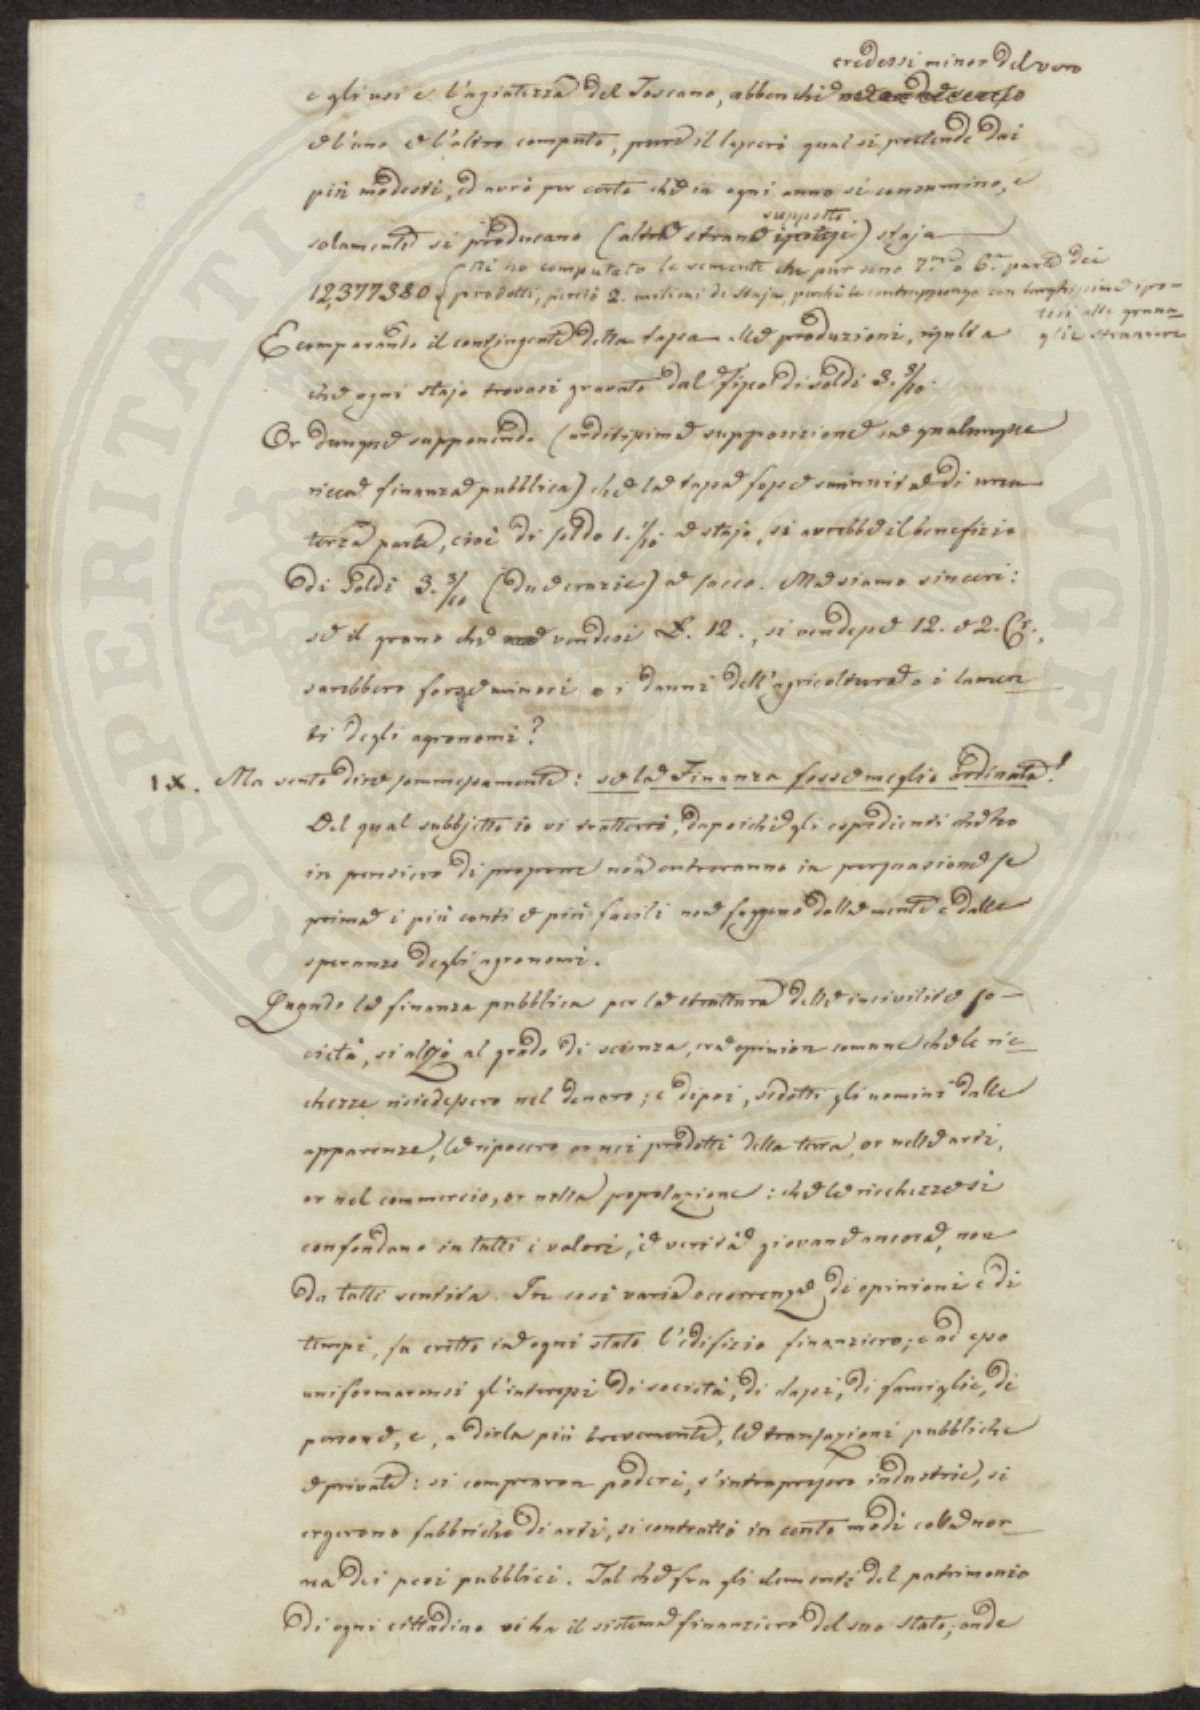 credessi minor del vero
e gli usi e l'agiatezza del Toscano, abbenchè
e l'uno e l'altro computo, pure il lascerò qual si pretende dai
più modesti, ed avrò per certo che in ogni anno si consumino, e
supposto
solamente si producano (altra strana ipotesi) staja
12,377380. { Nè ho computato le sementi che pur sono 7.ma o 6.a parte dei
prodotti, perciò 2. milioni di staja, perchè le contrapponga con larghissima ipo-
tesi alle grana-
glie straniere
E comparando il contingente della tassa alle produzioni, risulta
che ogni stajo trovasi gravato dal Fisco di soldi 3. 3/10.
Or dunque supponendo (arditissima supposizione in qualunque
ricca finanza pubblica) che la tassa fosse sminuita di una
terza parte, cioè di soldo 1. 1/10 a stajo, si avrebbe il benefizio
di Soldi 3. 3/10 (due crazie) a sacco. Ma siamo sinceri:
se il grano che vendesi L. 12., si vendesse 12. e 2. Cr.,
sarebbero forse minori o i danni dell'agricoltura o i lamen-
ti degli agronomi?
IX. Ma sento dire sommessamente: se la Finanza fosse meglio ordinata!
Del qual subbjetto io vi tratterrò, dapoichè gli espedienti che ho
in pensiero di proporre non entreranno in persuasione se
prima i più conti e più facili non fuggono dalla mente e dalle
speranze degli agronomi.
Quando la finanza pubblica per la struttura delle incivilite so-
cietà, si alzò al grado di scienza, era opinion comune che le ric-
chezze risiedessero nel denaro; e dipoi, sedotti gli uomini dalle
apparenze, le riposero or nei prodotti della terra, or nelle arti,
or nel commercio, or nella popolazione: che le ricchezze si
confondano in tutti i valori, è verità giovane ancora, non
da tutti sentita. In così varia occorrenza di opinioni e di
tempi, fu eretto in ogni stato l'edifizio finanziero; e ad esso
uniformaronsi gl'interessi di società, di classi, di famiglie, di
persone, e, a dirla più brevemente, le transazioni pubbliche
e private: si compraron poderi, s'intrapresero industrie, si
ergerono fabbriche di arti, si contrattò in cento modi colla nor-
ma dei pesi pubblici. Tal che fra gli elementi del patrimonio
di ogni cittadino vi ha il sistema finanziero del suo stato; onde
PROSPERITATI PUBLICAE AUGENDAE